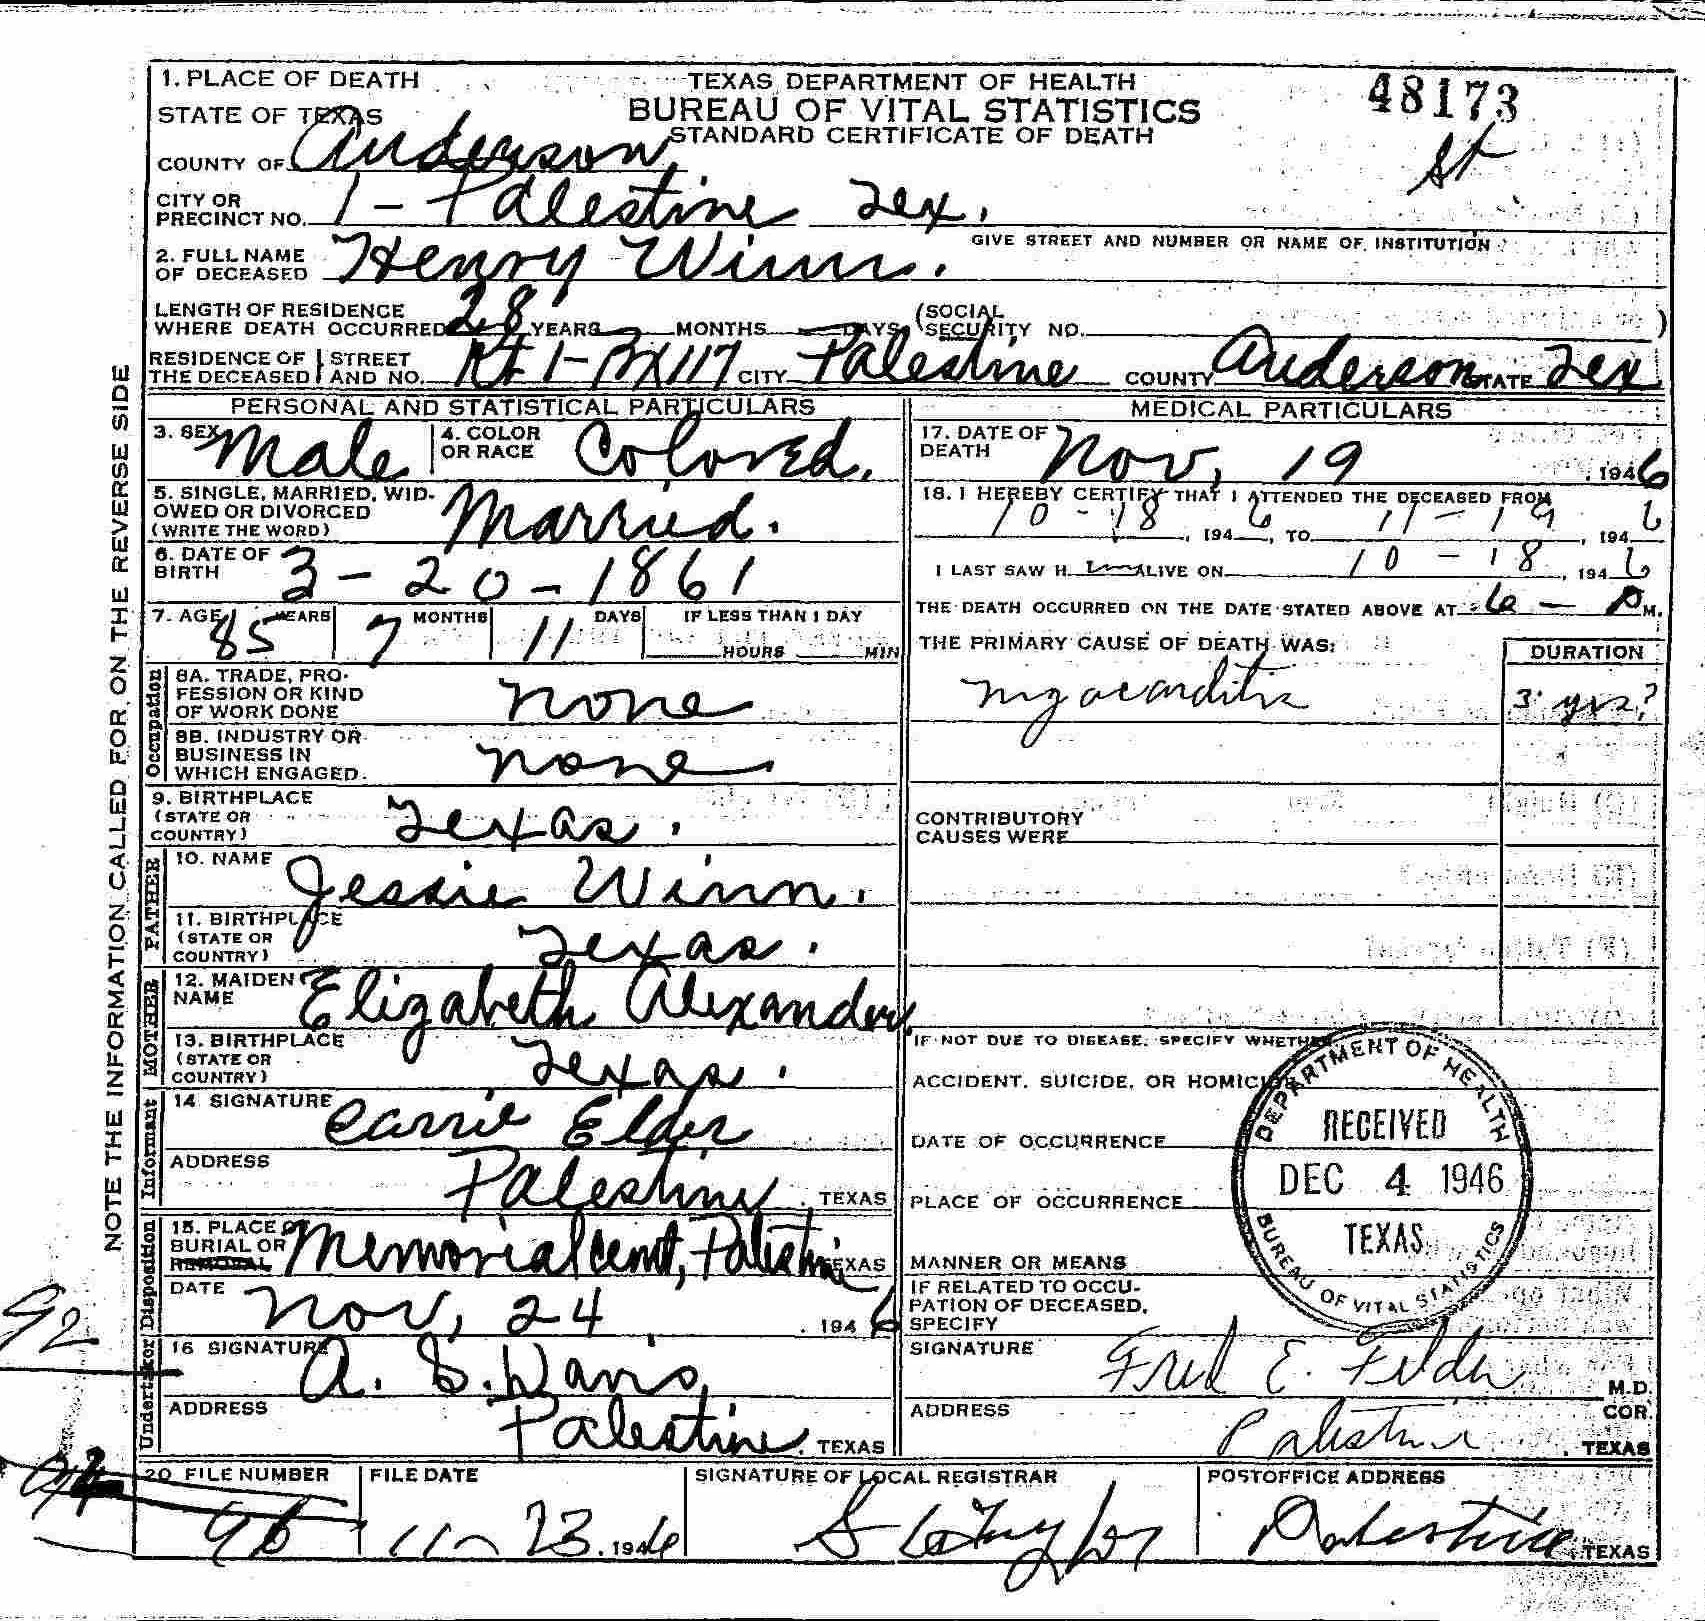 1. PLACE OF DEATH
TEXAS DEPARTMENT OF HEALTH
48173
STATE OF TEXAS
BUREAU OF VITAL STATISTICS
STANDARD CERTIFICATE OF DEATH
COUNTY OF Anderson
CITY OR PRECINCT NO. 1 - Palestine Tex.
GIVE STREET AND NUMBER OR NAME OF INSTITUTION
2. FULL NAME OF DECEASED Henry Winn.
LENGTH OF RESIDENCE WHERE DEATH OCCURRED 28 YEARS MONTHS DAYS (SOCIAL SECURITY NO. )
RESIDENCE OF THE DECEASED STREET AND NO. Rt 1 - BX 117 CITY Palestine COUNTY Anderson STATE Tex
NOTE THE INFORMATION CALLED FOR, ON THE REVERSE SIDE
PERSONAL AND STATISTICAL PARTICULARS
3. SEX Male 4. COLOR OR RACE Colored.
5. SINGLE, MARRIED, WIDOWED OR DIVORCED (WRITE THE WORD) Married.
6. DATE OF BIRTH 3 - 20 - 1861
7. AGE 85 YEARS 7 MONTHS 11 DAYS IF LESS THAN 1 DAY HOURS MIN
Occupation
8A. TRADE, PROFESSION OR KIND OF WORK DONE none
8B. INDUSTRY OR BUSINESS IN WHICH ENGAGED. none.
9. BIRTHPLACE (STATE OR COUNTRY) Texas.
FATHER
10. NAME Jessie Winn.
11. BIRTHPLACE (STATE OR COUNTRY) Texas.
MOTHER
12. MAIDEN NAME Elizabeth Alexander.
13. BIRTHPLACE (STATE OR COUNTRY) Texas.
Informant
14 SIGNATURE Carrie Elder
ADDRESS Palestine, TEXAS
Undertaker Disposition
15. PLACE OF BURIAL OR REMOVAL Memorial cemt, Palestine TEXAS
DATE Nov, 24 1946
16 SIGNATURE A. S. Davis,
ADDRESS Palestine, TEXAS
92
MEDICAL PARTICULARS
17. DATE OF DEATH Nov, 19, 1946
18. I HEREBY CERTIFY THAT I ATTENDED THE DECEASED FROM
10 - 18, 1946, TO 11 - 19, 1946
I LAST SAW H im ALIVE ON 10 - 18, 1946
THE DEATH OCCURRED ON THE DATE STATED ABOVE AT 6 - P M.
THE PRIMARY CAUSE OF DEATH WAS: DURATION
myocarditis 3 yrs?
CONTRIBUTORY CAUSES WERE
IF NOT DUE TO DISEASE, SPECIFY WHETHER
ACCIDENT, SUICIDE, OR HOMICIDE
DATE OF OCCURRENCE
PLACE OF OCCURRENCE
MANNER OR MEANS
IF RELATED TO OCCUPATION OF DECEASED, SPECIFY
DEPARTMENT OF HEALTH
RECEIVED
DEC 4 1946
TEXAS
BUREAU OF VITAL STATISTICS
SIGNATURE Fred E. Felder M.D.
COR.
ADDRESS Palestine, TEXAS
20 FILE NUMBER 96
FILE DATE 11 - 23, 1946
SIGNATURE OF LOCAL REGISTRAR
POSTOFFICE ADDRESS Palestine, TEXAS